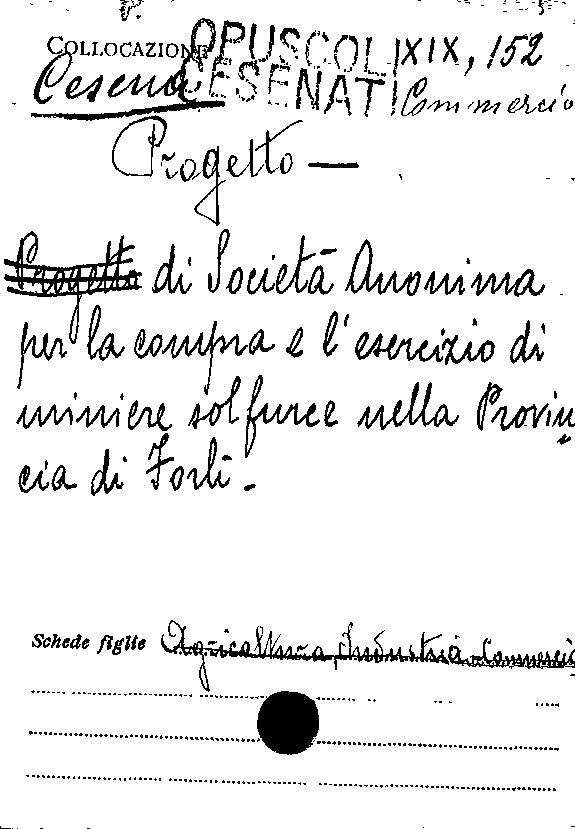 COLLOCAZIONE OPUSCOLI XIX, 152
Cesena CESENATI Commercio
Progetto —
Progetto di Società Anonima
per la compra e l'esercizio di
miniere solfuree nella Provin
cia di Forlì -
Schede figlie Agricoltura, Industria, Commercio